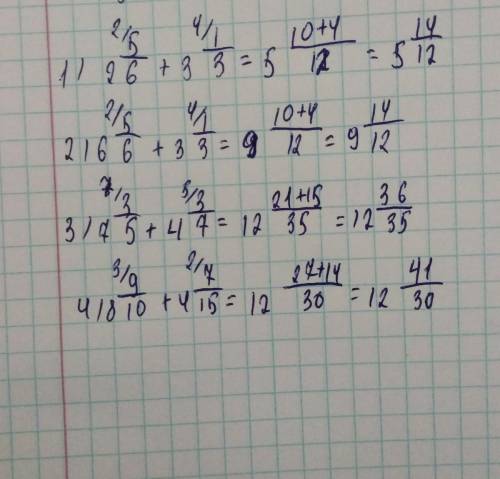 1) 2 ²⁄ 5/6 + 3 ⁴⁄ 1/3 = 5 10+4/12 = 5 14/12
2) 6 ²⁄ 5/6 + 3 ⁴⁄ 1/3 = 9 10+4/12 = 9 14/12
3) 7 ⁷⁄ 3/5 + 4 ⁵⁄ 3/7 = 12 21+15/35 = 12 36/35
4) 8 ³⁄ 9/10 + 4 ²⁄ 7/15 = 12 27+14/30 = 12 41/30